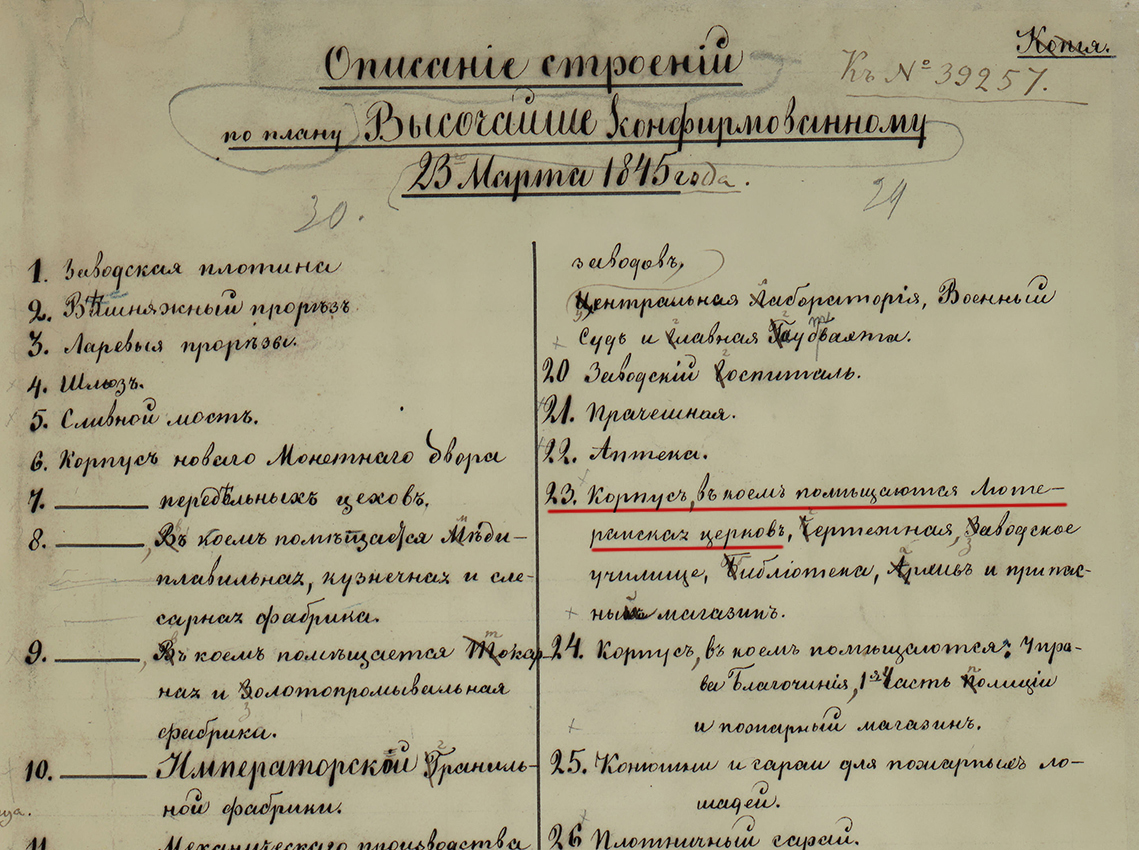 Копія.
Описаніе строеній
Къ № 39257.
по плану Высочайше Конфирмованному
23 Марта 1845 года.
30. 29
1. Заводская плотина
2. Вѣшняжный прорѣзъ
3. Ларевыя прорѣзы.
4. Шлюзъ.
5. Сливной мостъ.
6. Корпусъ новаго Монетнаго двора
7. ——— передѣльныхъ цеховъ.
8. ———, Въ коемъ помѣщается Мѣди-
плавильная, кузнечная и сле-
сарная фабрика.
9. ———, Въ коемъ помѣщается Токар-
ная и Золотопромывальная
фабрика.
10. ——— Императорской Граниль-
ной фабрики.
11. Механическаго производства
заводовъ,
Центральная Лабораторія, Военный
Судъ и Главная Гаубвахта.
20 Заводскій Госпиталь.
21. Прачешная.
22. Аптека.
23. Корпусъ, въ коемъ помѣщаются Люте-
ранская церковь, Чертежная, Заводское
училище, Библіотека, Архивъ и припас-
ный магазинъ.
24. Корпусъ, въ коемъ помѣщаются: Упра-
ва Благочинія, 1я Часть Полиціи
и пожарный магазинъ.
25. Конюшни и сараи для пожарныхъ ло-
шадей.
26 Плотничный сарай.